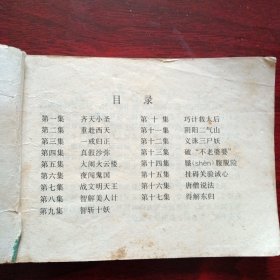 目 录
第一集 齐天小圣
第二集 重赴西天
第三集 一戒归正
第四集 真假沙弥
第五集 大闹火云楼
第六集 夜闯鬼国
第七集 战文明天王
第八集 智解美人计
第九集 智斩十妖
第十集 巧计救太后
第十一集 阴阳二气山
第十二集 文殊三尸妖
第十三集 破“不老婆婆”
第十四集 蜃(shèn)腹脱险
第十五集 挂碍关验诚心
第十六集 唐僧说法
第十七集 得解东归